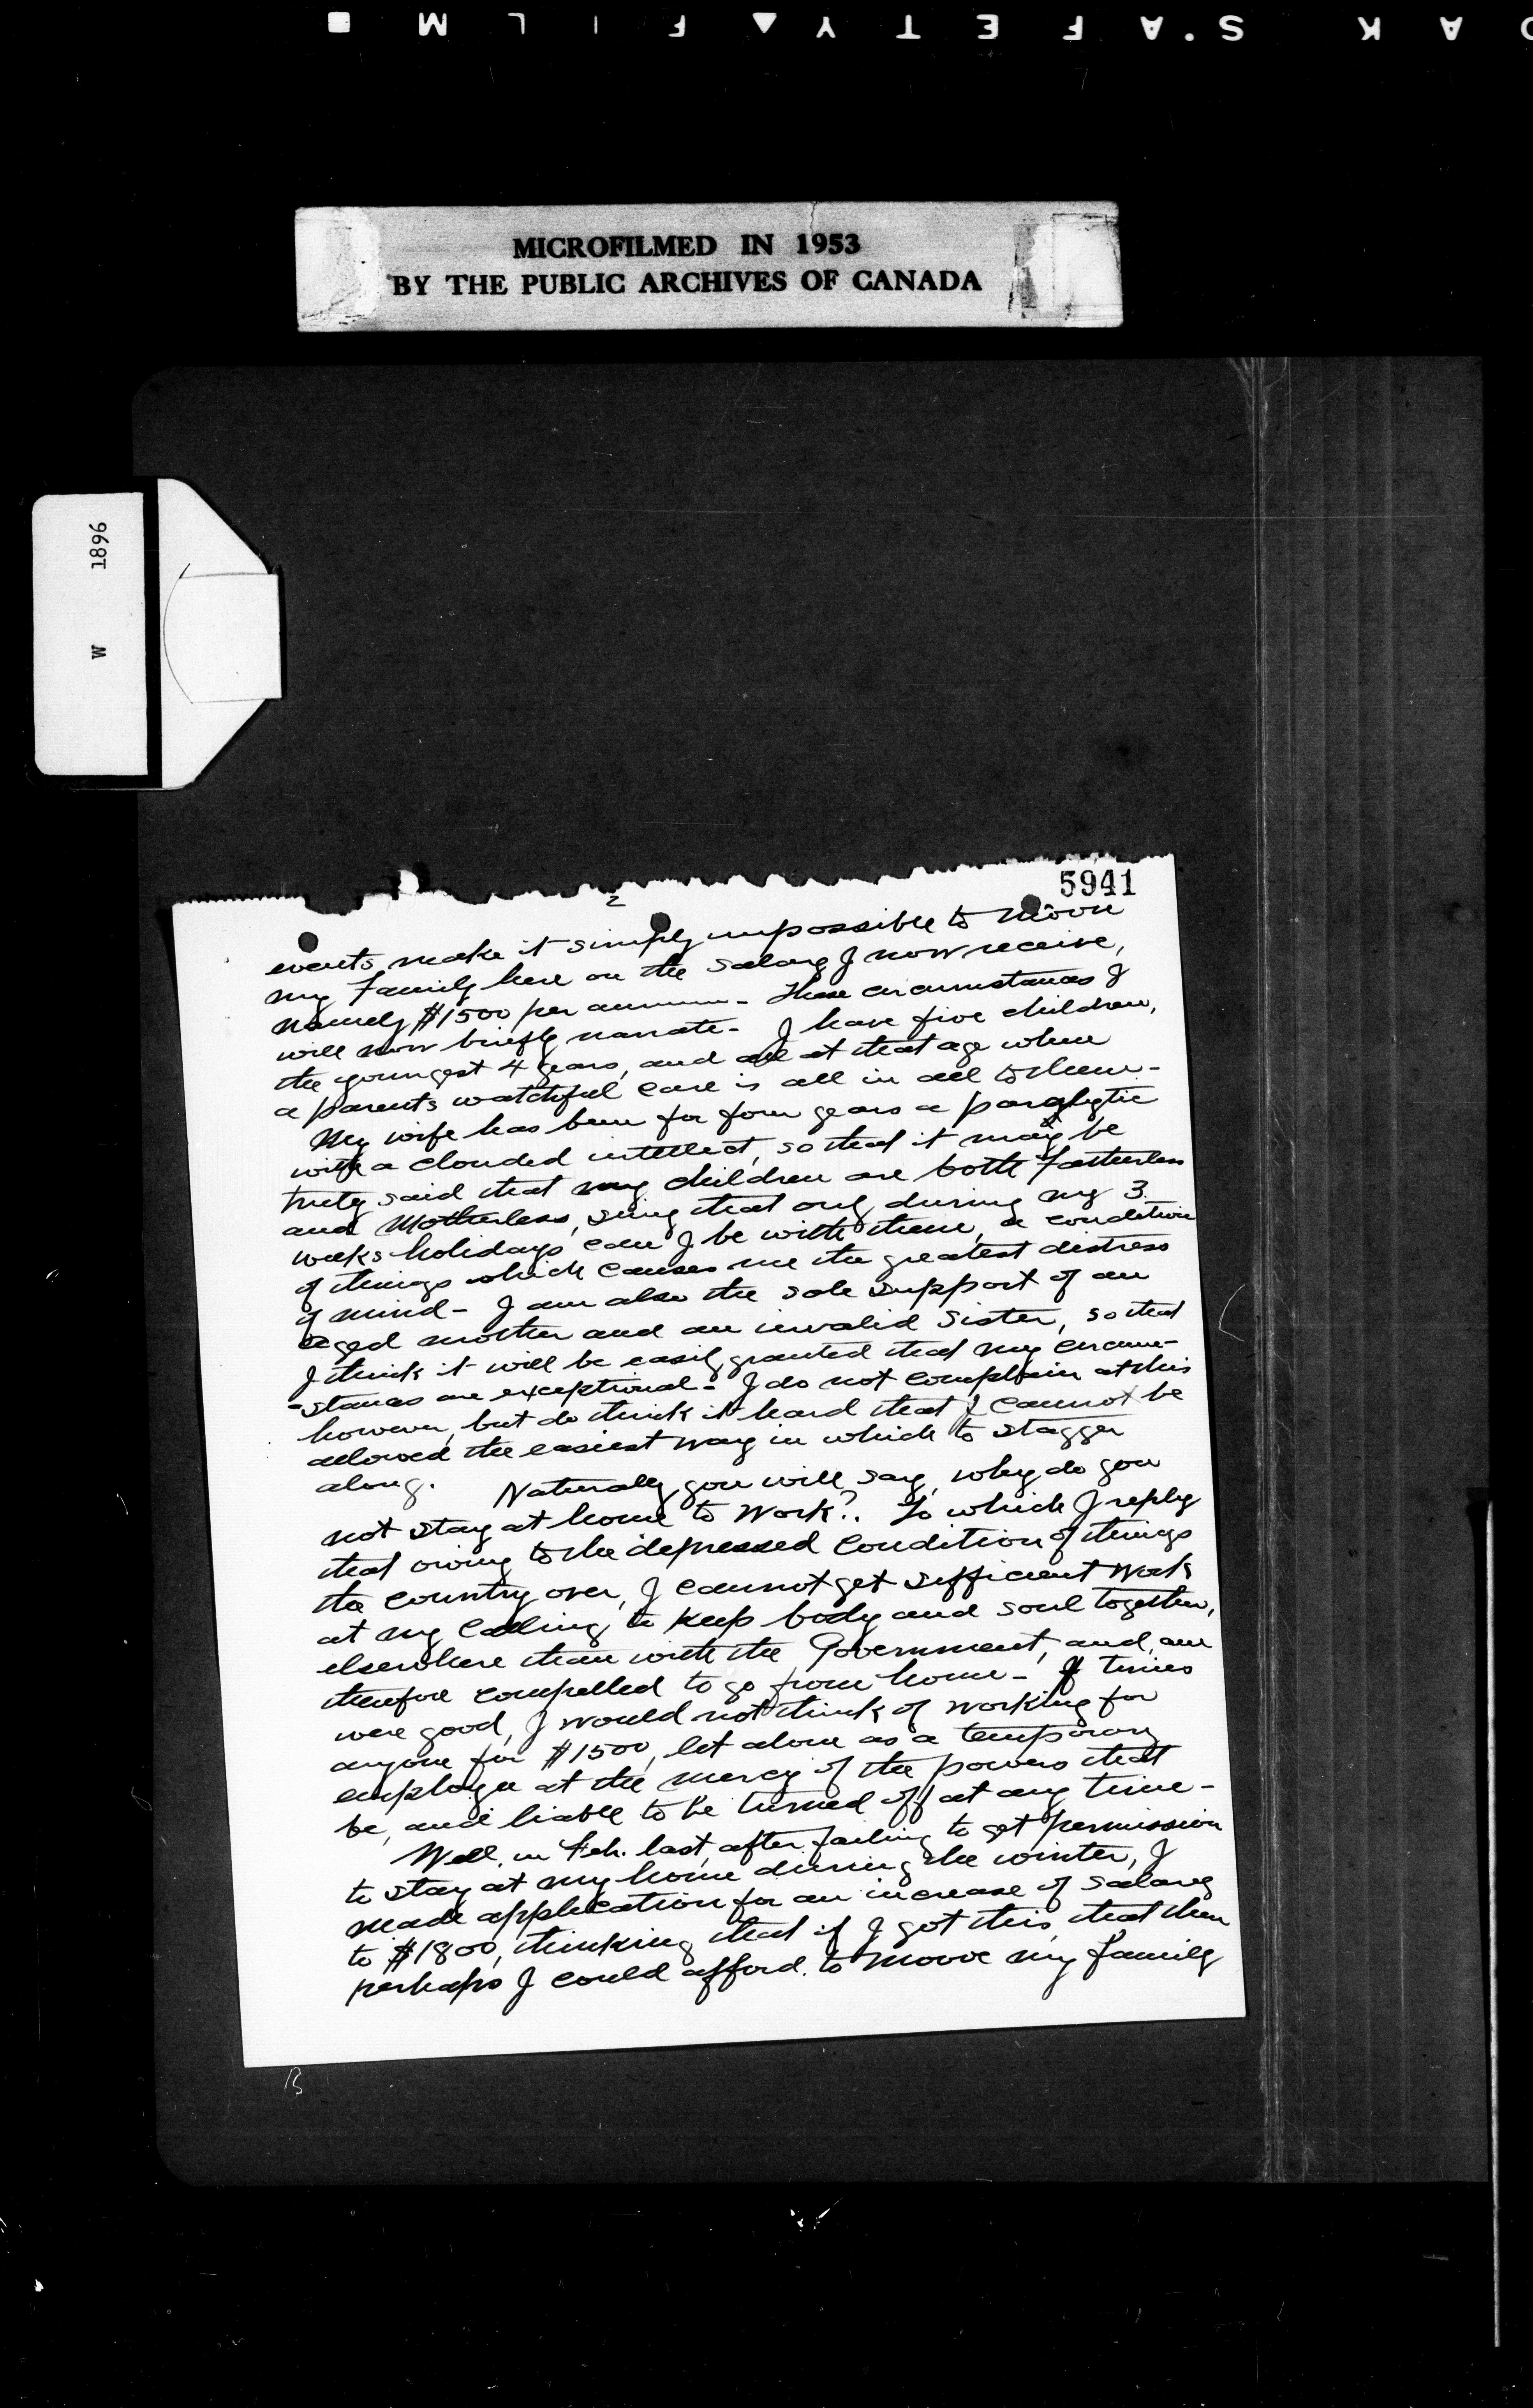 SAFETY FILM
MICROFILMED IN 1953
BY THE PUBLIC ARCHIVES OF CANADA
W 1896
5941
2
events make it simply impossible to moove
my family here on the salary I now receive,
namely $1500 per annum - These circumstances I
will now briefly narrate - I have five children,
the youngest 4 years, and all at that age when
a parent's watchful care is all in all to them -
My wife has been for four years a paralytic
with a clouded intellect, so that it may be
truly said that my children are both fatherless
and Motherless, seing that only during my 3
weeks holidays can I be with them, a condition
of things which causes me the greatest distress
of mind - I am also the sole support of an
aged mother and an invalid sister, so that
I think it will be easily granted that my circum-
-stances are exceptional - I do not complain at this
however, but do think it hard that I cannot be
allowed the easiest way in which to stagger
along. Naturally you will say, why do you
not stay at home to work? . To which I reply
that owing to the depressed condition of things
the country over, I cannot get sufficient work
at my calling, to keep body and soul together,
elsewhere than with the Government, and am
therefore compelled to go from home - If times
were good, I would not think of working for
anyone for $1500, let alone as a temporary
employee at the mercy of the powers that
be, and liable to be turned off at any time -
Well, in Feb. last, after failing to get permission
to stay at my home during the winter, I
made application for an increase of salary
to $1800, thinking that if I got this, that then
perhaps I could afford to moove my family
B